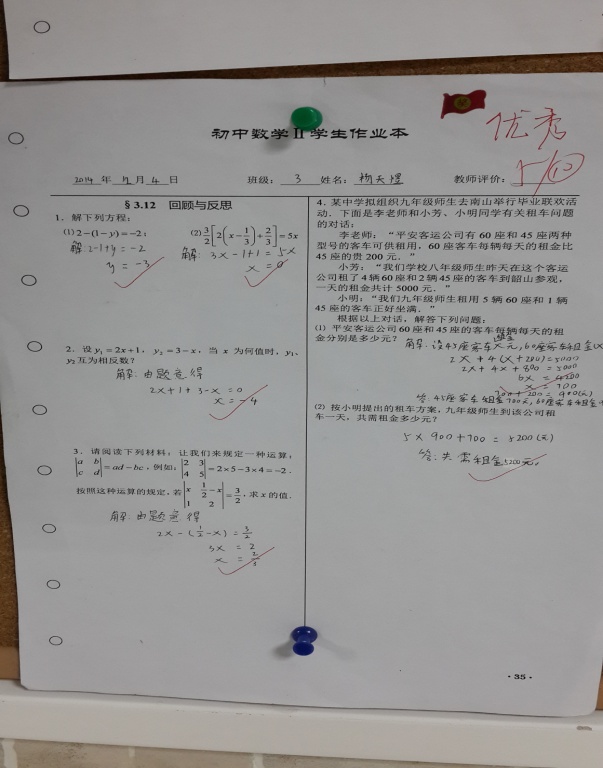 初中数学Ⅱ学生作业本
优秀
2014 年 12 月 4 日 班级: 3 姓名: 杨天煜 教师评价:
§3.12 回顾与反思
1. 解下列方程:
(1) 2-(1-y)=-2; (2) 3/2[2(x-1/3)+2/3]=5x
解: 2-1+y=-2
y=-3
解: 3x-1+1=5x
x=0
2. 设 y₁=2x+1, y₂=3-x, 当 x 为何值时, y₁、
y₂ 互为相反数?
解: 由题意得
2x+1+3-x=0
x=-4
3. 请阅读下列材料: 让我们来规定一种运算,
|a b; c d|=ad-bc, 例如: |2 3; 4 5|=2×5-3×4=-2.
按照这种运算的规定, 若|x 1/2-x; 1 2|=3/2, 求 x 的值.
解: 由题意得
2x-(1/2-x)=3/2
3x=2
x=2/3
4. 某中学拟组织九年级师生去南山举行毕业联欢活
动. 下面是李老师和小芳、小明同学有关租车问题
的对话:
李老师: “平安客运公司有 60 座和 45 座两种
型号的客车可供租用, 60 座客车每辆每天的租金比
45 座的贵 200 元.”
小芳: “我们学校八年级师生昨天在这个客运
公司租了 4 辆 60 座和 2 辆 45 座的客车到韶山参观,
一天的租金共计 5000 元.”
小明: “我们九年级师生租用 5 辆 60 座和 1 辆
45 座的客车正好坐满.”
根据以上对话, 解答下列问题:
(1) 平安客运公司 60 座和 45 座的客车每辆每天的租
金分别是多少元?
解: 设45座客车租金x元, 60座客车租金(x
2x+4(x+200)=5000
2x+4x+800=5000
6x=4200
x=700
700+200=900(元)
答: 45座客车租金700元, 60座客车租金
(2) 按小明提出的租车方案, 九年级师生到该公司租
车一天, 共需租金多少元?
5×900+700=5200(元)
答: 共需租金5200元.
·35·